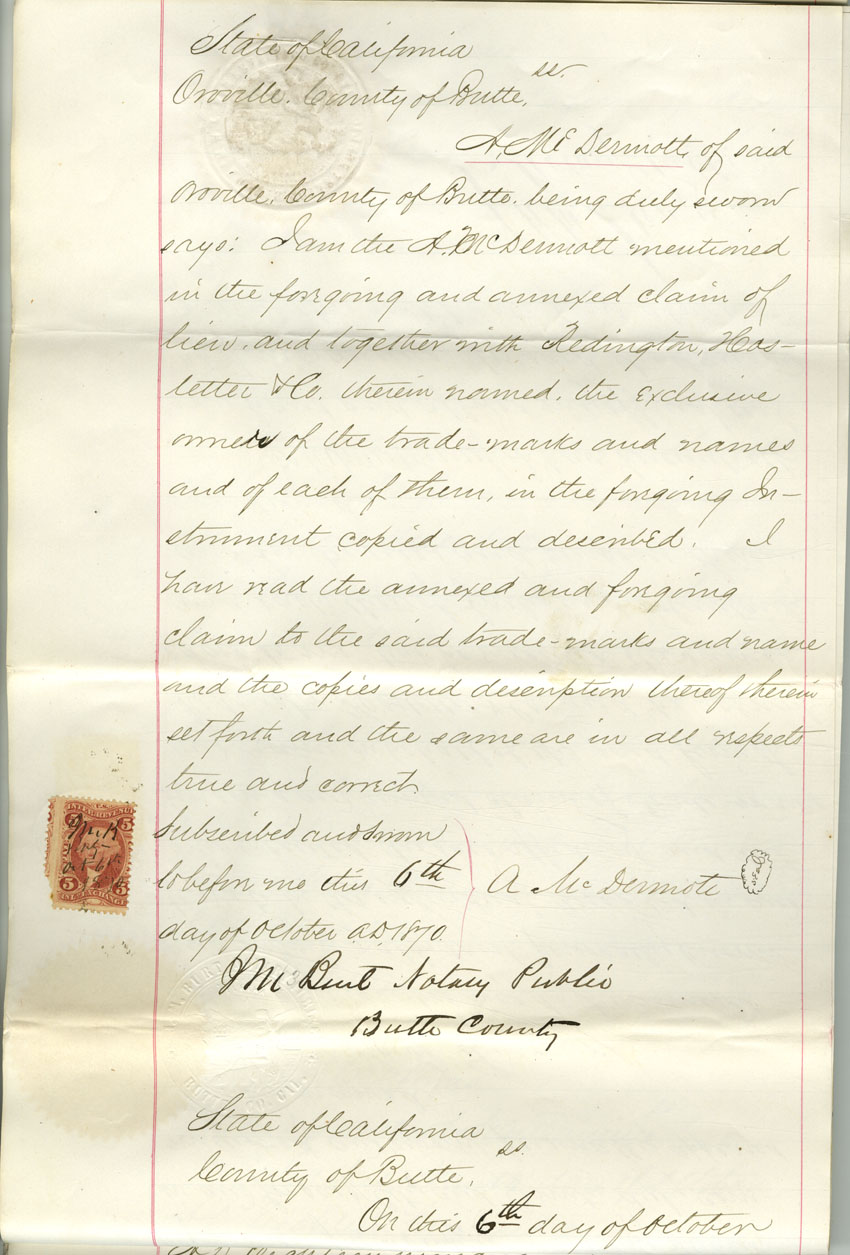 State of California
Oroville. County of Butte, ss.
A. McDermott, of said
Oroville, County of Butte. being duly sworn
says: I am the A. McDermott mentioned
in the foregoing and annexed claim of
lien, and together with Redington, Hos-
tetter & Co. therein named. the exclusive
owners of the trade-marks and names
and of each of them, in the forgoing In-
strument copied and described. I
have read the annexed and forgoing
claim to the said trade-marks and name
and the copies and description thereof therein
set forth and the same are in all respects
true and correct.
Subscribed and sworn
to before me this 6th
day of October A.D. 1870.
A McDermott
SEAL
U.S.
INTER. REVENUE
5 5
Oct 6th
1870
5 5
INL. EXCHANGE
Burt Notary Public
Butte County
State of California
County of Butte, ss.
On this 6th day of October